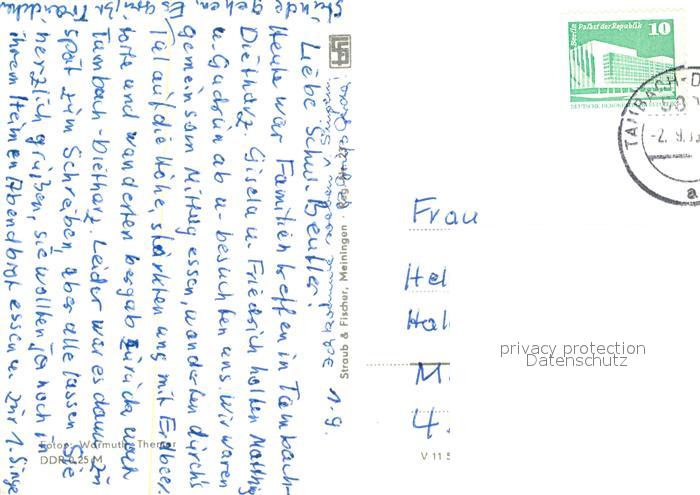 1.9.
Liebe Schw. Beutler!
Heute war Familientreffen in Tambach-
Dietharz. Gisela u. Friedrich holten
u. Gudrun ab u. besuchten uns. Wir waren
gemeinsam Mittag essen, wanderten durchs
Tal auf die Höhe, stärkten uns mit Erdbeer
torte und wanderten bergab zurück nach
Tambach-Dietharz. Leider war es dann zu
spät zum Schreiben, aber alle lassen Sie
herzlich grüßen, sie wollten ja noch in
ihrem Heim Abendbrot essen u. zur 1. Singe
stunde gehen. Es grüßt
Straub & Fischer, Meiningen
Fotos: Warmuth,
DDR 0,25 M
V 11 5
Berlin Palast der Republik
10
TAMBACH-D
-2. 9.
a
Frau
Hel
Hal
M.
4.
privacy protection
Datenschutz